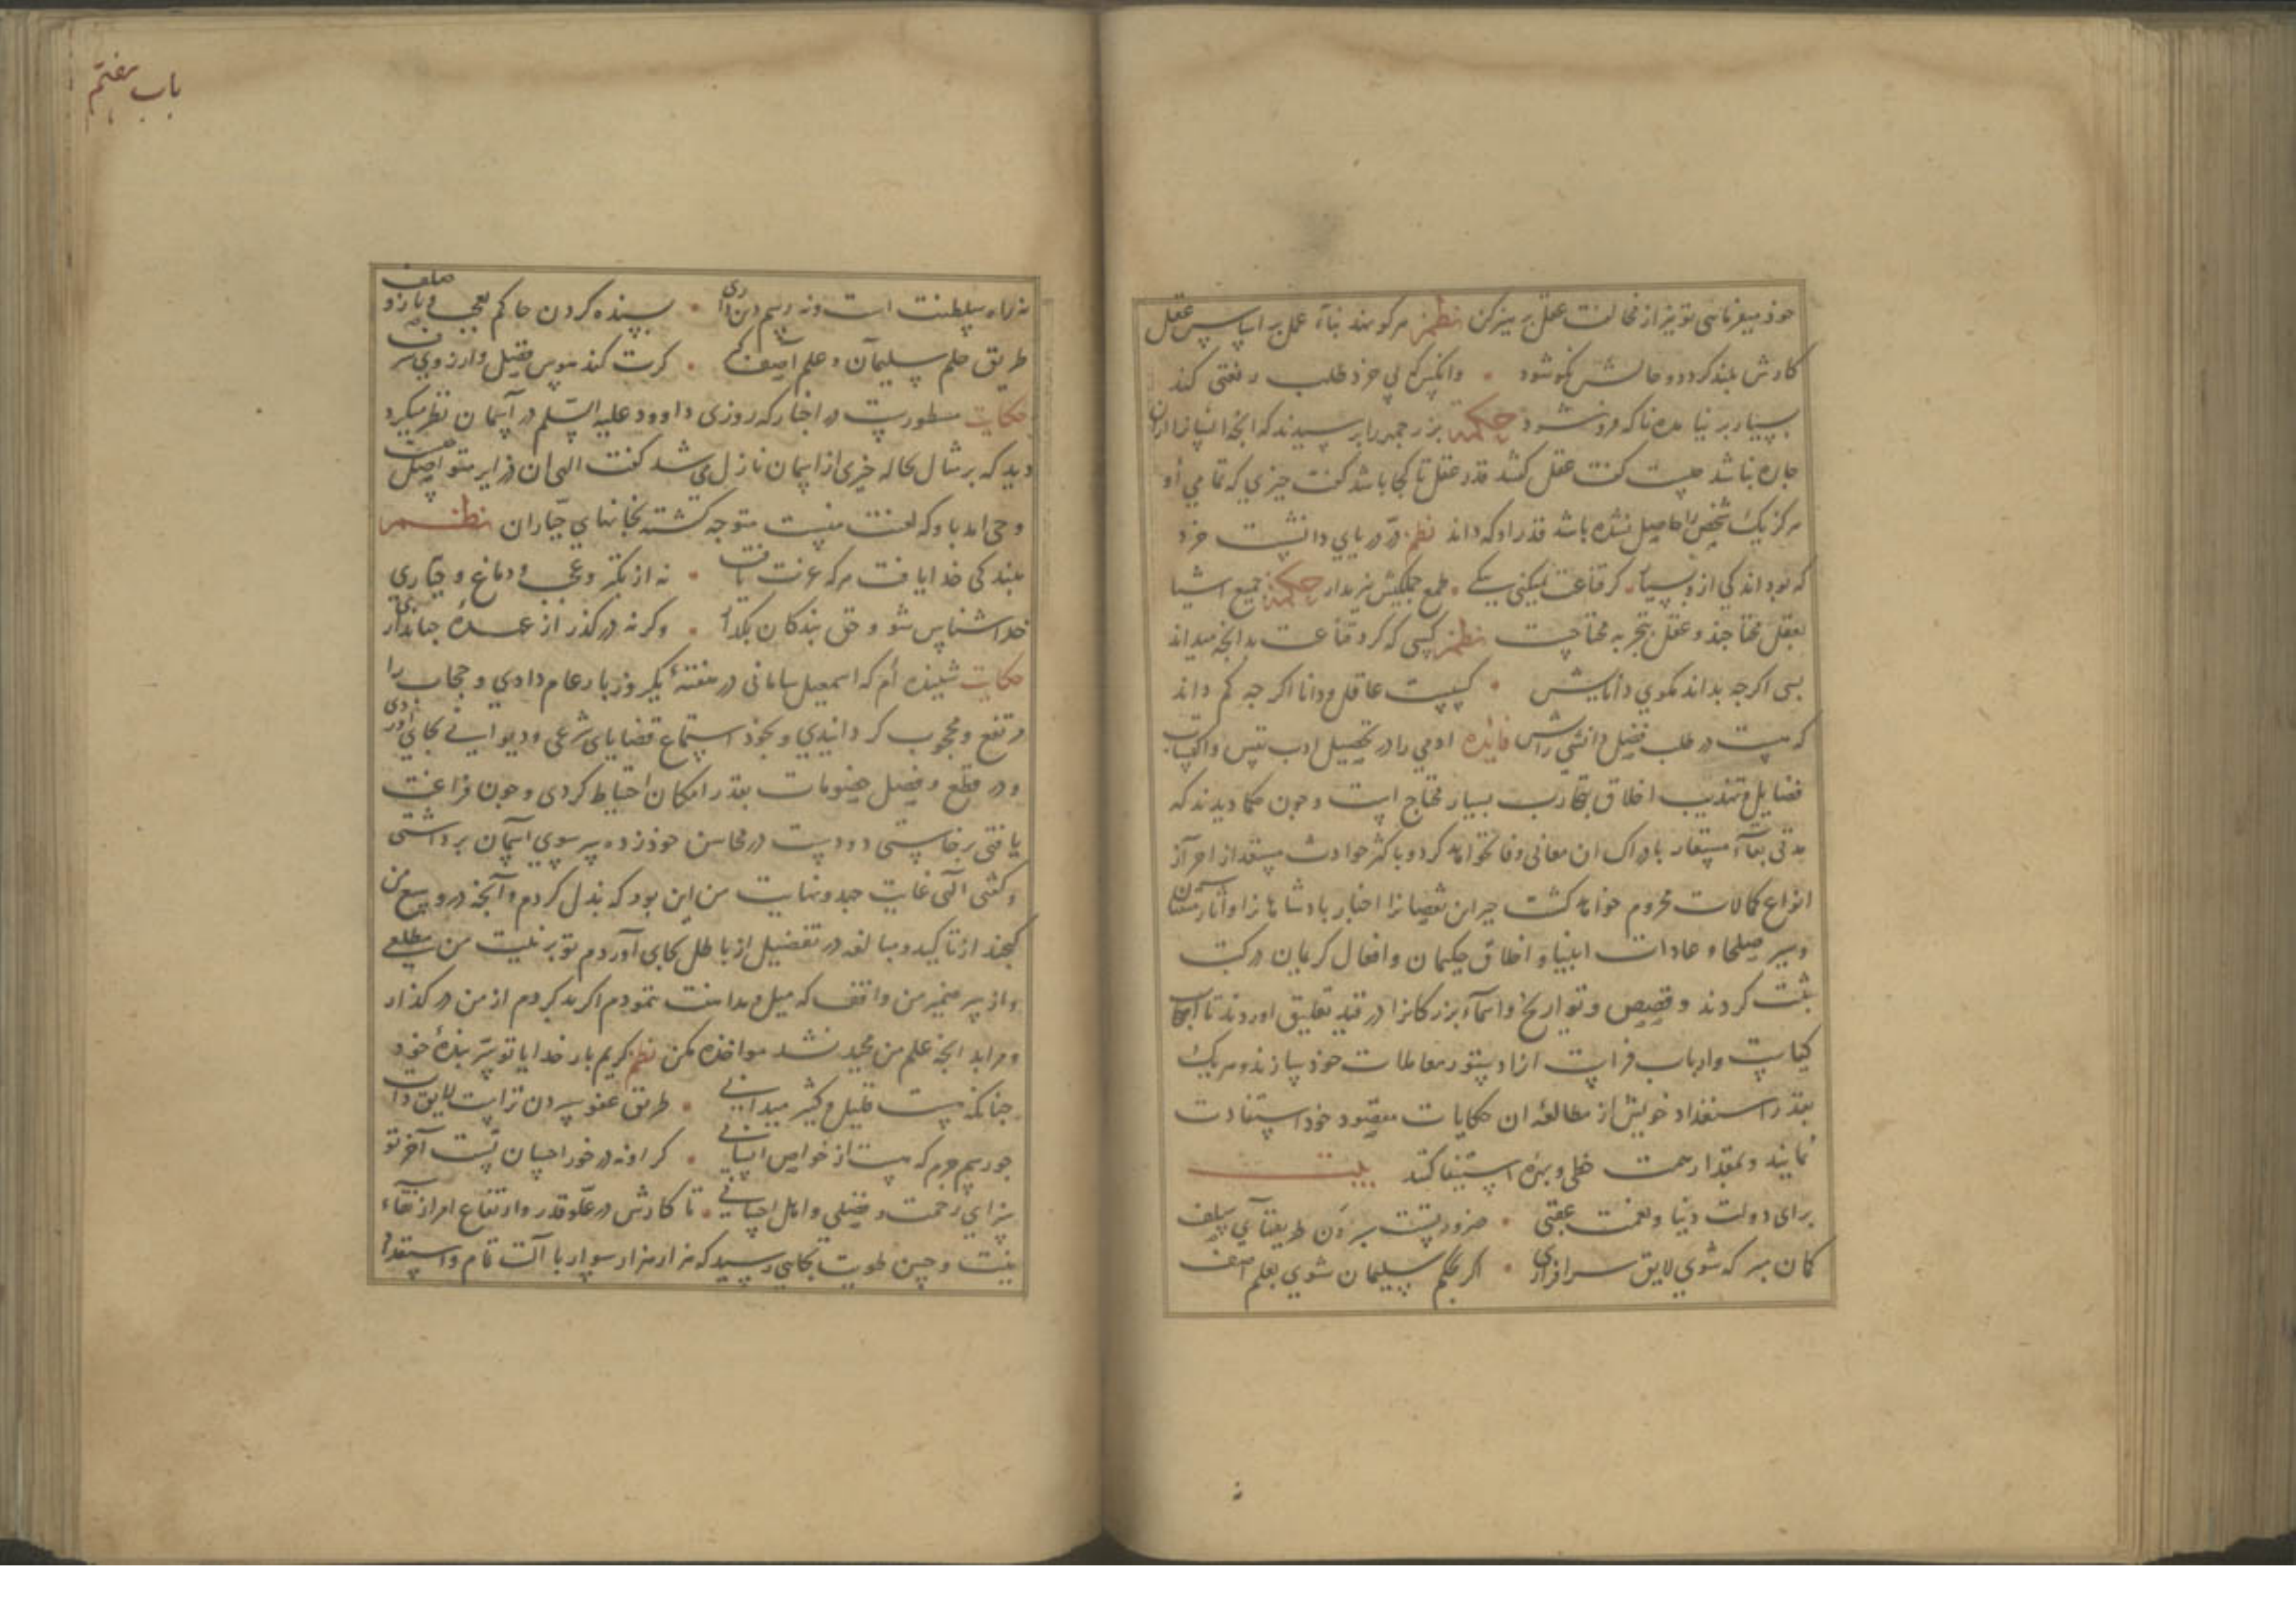 خود میفرمائی تو نیز از مخالفت عقل پرهیز کن نظم هر کو نهد بنآء عمل بر اساس عقل
کارش بلند کردد و حالش نکو شود وانکس که بی خرد طلب رفعتی کند
بسیار بر نیامده ناکه فرو شود حکمة بزرجمهر را پرسیدند که آنچه انسانرا ازان
چاره نباشد چیست کفت عقل کفتند قدر عقل تا کجا باشد کفت چیزی که تمامی او
هرکز یک شخص را حاصل نشده باشد قدر او که داند نظم در دریای دانشست خرد
که بود اندکی ازو بسیار کر قناعت نمیکنی بیکی طمع جملکیش نیز مدار حکمة جمیع اشیا
بعقل محتاجند و عقل بتجربه محتاجست نظم کسی که کرد قناعت بدانچه میداند
بسی اکرچه بداند مکوی دانایش کسیست عاقل و دانا اکرچه کم داند
که هست در طلب فضل و دانشی رایش فائده ادمی را در تحصیل ادب نفس و اکتساب
فضایل و تهذیب اخلاق بتجارب بسیار محتاج است و چون حکما دیدند که
مدتی بقآء مستعار بادراک ان معانی وفا نخواهد کرد و باکثر حوادث مستعد از احراز
انواع کمالات محروم خواهد کشت جبر این نقصانرا اخبار پادشاهانرا و آثار
و سیر صلحا و عادات انبیا و اخلاق حکیمان و افعال کریمان در کتب
ثبت کردند و قصص و تواریخ و اسمآء بزرکانرا در قید تعلیق اوردند تا اصحاب
کیاست و ارباب فراست ازان دستور معاملات خود سازند و هر یک
بقدر استعداد خویش از مطالعهٔ ان حکایات مقصود خود استفادت
نمایند و بمقدار همت حظی و بهره استیفا کنند بیت
برای دولت دنیا و نعمت عقبی ضرورتست سپردن طریقهآی سلف
کمان مبر که شوی لایق سرافرازی اکر بحکم سلیمان شوی بعلم آصف
باب هفتم
نه راه سلطنت است و نه رسم دین داری بسنده کردن حاکم بعجب و ناز و صلف
طریق حلم سلیمان و علم آصف کیر کرت کند هوس فضل و ارزوی شرف
حکایت مسطورست در اخبار که روزی داوود علیه السّلم در آسمان نظر میکرد
دید که بر مثال نخاله چیزی از اسمان نازل می شد کفت الهی ان چیست
وحی امد باو که لعنت منست متوجه کشته بخانهای جبّاران نظم
ببندکی خدا یافت هر که عزت یافت نه از تکبر و عجب و دماغ و جبّاری
خدا شناس شو و حق بندکان بکذار وکرنه در کذر از عهدهٔ جهانداری
حکایت شنیده ام که اسمعیل سامانی در هفتهٔ یکروز بار عام دادی و حجاب را
مرتفع و محجوب کردانیدی و بخود استماع قضایای شرعی و دیوانی بجای اوردی
و در قطع و فصل خصومات بقدر امکان احتیاط کردی و چون فراغت
یافتی برخاستی و دو دست در محاسن خود زده سر سوی اسمان برداشتی
و کفتی الهی غایت جهد و نهایت من این بود که بذل کردم و آنچه در وسع من
کنجد از تاکید و مبالغه در تفضیل از باطل بجای آوردم تو بر نیت من مطلعی
و از سر ضمیر من واقف که میل و مداهنت ننمودم اکر بد کردم از من در کذار
و مرا بدانچه علم من محیط نشد مواخذه مکن نظم کریم بار خدایا تو سرّ بندهٔ خود
چنانکه هست قلیل و کثیر میدانی طریق عفو سپردن تراست لایق ذات
چو رسم جرم که هست از خواص انسانی کر او نه در خور احسان تست آخر تو
سزای رحمت و فضلی و اهل احسانی تا کارش در علو قدر و ارتفاع امر از نقآء
نیت و حسن طویت بجایی رسید که هزار هزار سوار با آلت تام و استعداد